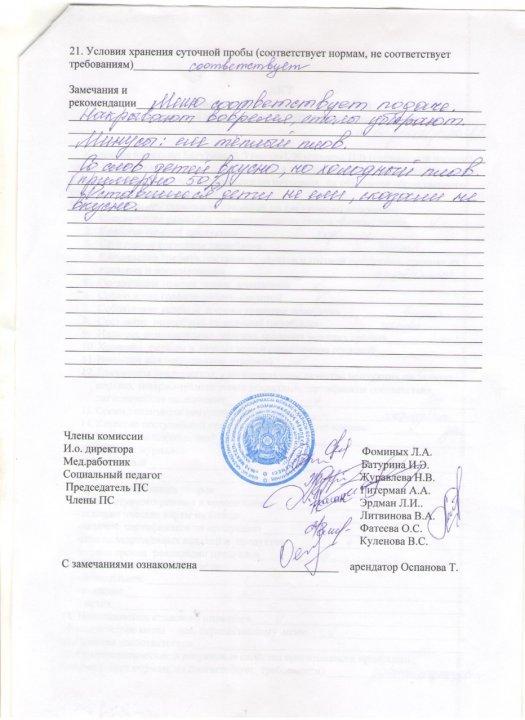 21. Условия хранения суточной пробы (соответствует нормам, не соответствует
требованиям) соответствует
Замечания и
рекомендации Меню соответствует подаче.
Накрывают вовремя, столы убирают
Минусы: еле тёплый плов.
Со слов детей вкусно, но холодный плов.
(примерно 50%)
Оставшиеся дети не ели, сказали не
вкусно.
Члены комиссии
И.о. директора Фоминых Л.А.
Мед.работник Батурина И.Э.
Социальный педагог Журавлева Н.В.
Председатель ПС Гитерман А.А.
Члены ПС Эрдман Л.И..
Литвинова В.А.
Фатеева О.С.
Куленова В.С.
С замечаниями ознакомлена арендатор Оспанова Т.